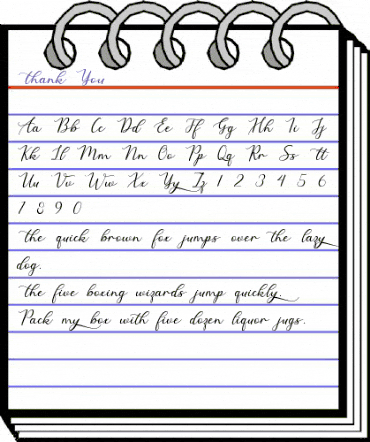 thank You
Aa Bb Cc Dd Ee Ff Gg Hh Ii Jj
Kk Ll Mm Nn Oo Pp Qq Rr Ss tt
Uu Vv Ww Xx Yy Zz 1 2 3 4 5 6
7 8 9 0
the quick brown fox jumps over the lazy
dog.
the five boxing wizards jump quickly.
Pack my box with five dozen liquor jugs.